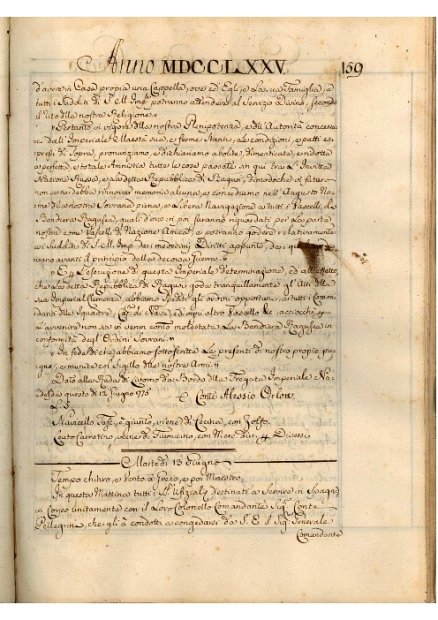 Anno MDCCLXXV. 159
d'avere in Casa propria una Cappella, ove ed Egli, e la sua Famiglia, e
tutti i Sudditi di S. M. Imp. potranno attendere al Servizio Divino, secondo
il Rito della nostra Religione.
Pertanto in vigore della nostra Plenipotenza, e dell'Autorità concessa
dall'Imperiale Maestà Sua, e ferme stanti le condizioni, e patti es-
pressi di sopra, pronunziamo, e dichiariamo abolite, dimenticate, e ridotte
a perfetta, e totale Amnistia tutte le cose passate fin qui tra l'Invitta
Nazione Russa, e la detta Repubblica di Ragusi, dimodoché in futuro
non se ne debba rinnovar memoria alcuna, e concediamo nell'Augusto No-
me della nostra Sovrana piena, e libera Navigazione a tutti i Vascelli, e
Bandiera Ragusea, quali d'ora in poi saranno riguardati per la parte
nostra come Vascelli di Nazione Amica, e potranno godere relativamente
ai Sudditi di S. M. Imp. dei medesimi Diritti appunto, dei quali
avanti il principio della decorsa Guerra.
E per l'esecuzione di questa Imperiale determinazione, ed all'effetto,
che la detta Repubblica di Ragusi goda tranquillamente gli Atti della
sua Imperial Clemenza, abbiamo spediti gli ordini opportuni a tutti i Coman-
danti delle Squadre, Cap. di Nave, ed ogni altro Vascello acciocché
in avvenire non sia in verun conto molestata la Bandiera Ragusea in
conformità degli Ordini Sovrani.
In fede di che abbiamo sottoscritta la presente di nostro proprio pu-
gno, e munita col Sigillo delle nostre Armi.
Data alla Rada di Livorno da Bordo della Fregata Imperiale Na-
questo dì 12 Giugno 1775
Conte Alessio Orlow
Navicello Tosc. e quinto, viene di Cecina, con Zolfo
Leuto Carratino, viene di Fiumicino, con Merc. Div.
Martedì 13 Giugno
Tempo chiaro, e Vento a Greco, e poi Maestro.
In questa Mattina tutti i SS. Ufiziali destinati a Servire in Spagna
in Corpo unitamente con il Loro Colonello Comandante Sig. Conte
Pellegrini, che gli à condotti a congedarsi da S. E. il Sig. Generale
Comandante